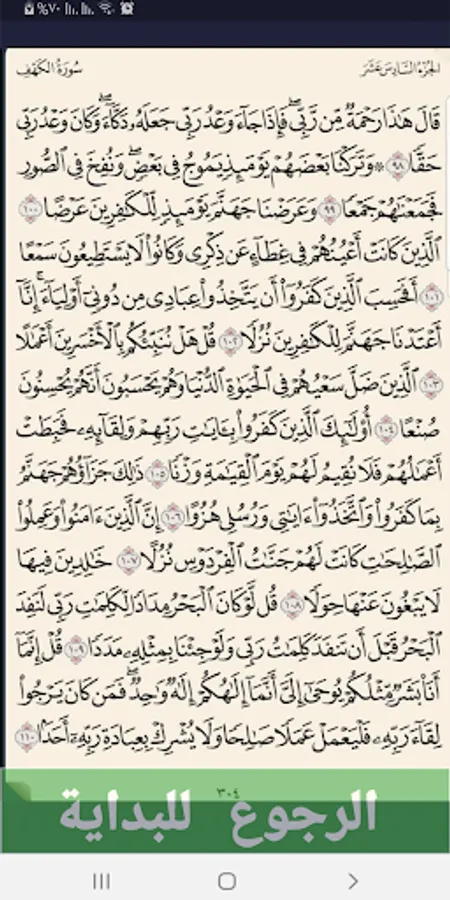 %٧٠
سُورَةُ الكَهْفِ
الجُزءُ السَّادِسَ عَشَرَ
قَالَ هَٰذَا رَحْمَةٌ مِّن رَّبِّي ۖ فَإِذَا جَاءَ وَعْدُ رَبِّي جَعَلَهُ دَكَّاءَ ۖ وَكَانَ وَعْدُ رَبِّي
حَقًّا ٩٨ ۞ وَتَرَكْنَا بَعْضَهُمْ يَوْمَئِذٍ يَمُوجُ فِي بَعْضٍ ۖ وَنُفِخَ فِي الصُّورِ
فَجَمَعْنَاهُمْ جَمْعًا ٩٩ وَعَرَضْنَا جَهَنَّمَ يَوْمَئِذٍ لِّلْكَافِرِينَ عَرْضًا ١٠٠
الَّذِينَ كَانَتْ أَعْيُنُهُمْ فِي غِطَاءٍ عَن ذِكْرِي وَكَانُوا لَا يَسْتَطِيعُونَ سَمْعًا
١٠١ أَفَحَسِبَ الَّذِينَ كَفَرُوا أَن يَتَّخِذُوا عِبَادِي مِن دُونِي أَوْلِيَاءَ ۚ إِنَّا
أَعْتَدْنَا جَهَنَّمَ لِلْكَافِرِينَ نُزُلًا ١٠٢ قُلْ هَلْ نُنَبِّئُكُم بِالْأَخْسَرِينَ أَعْمَالًا
١٠٣ الَّذِينَ ضَلَّ سَعْيُهُمْ فِي الْحَيَاةِ الدُّنْيَا وَهُمْ يَحْسَبُونَ أَنَّهُمْ يُحْسِنُونَ
صُنْعًا ١٠٤ أُولَٰئِكَ الَّذِينَ كَفَرُوا بِآيَاتِ رَبِّهِمْ وَلِقَائِهِ فَحَبِطَتْ
أَعْمَالُهُمْ فَلَا نُقِيمُ لَهُمْ يَوْمَ الْقِيَامَةِ وَزْنًا ١٠٥ ذَٰلِكَ جَزَاؤُهُمْ جَهَنَّمُ
بِمَا كَفَرُوا وَاتَّخَذُوا آيَاتِي وَرُسُلِي هُزُوًا ١٠٦ إِنَّ الَّذِينَ آمَنُوا وَعَمِلُوا
الصَّالِحَاتِ كَانَتْ لَهُمْ جَنَّاتُ الْفِرْدَوْسِ نُزُلًا ١٠٧ خَالِدِينَ فِيهَا
لَا يَبْغُونَ عَنْهَا حِوَلًا ١٠٨ قُل لَّوْ كَانَ الْبَحْرُ مِدَادًا لِّكَلِمَاتِ رَبِّي لَنَفِدَ
الْبَحْرُ قَبْلَ أَن تَنفَدَ كَلِمَاتُ رَبِّي وَلَوْ جِئْنَا بِمِثْلِهِ مَدَدًا ١٠٩ قُلْ إِنَّمَا
أَنَا بَشَرٌ مِّثْلُكُمْ يُوحَىٰ إِلَيَّ أَنَّمَا إِلَٰهُكُمْ إِلَٰهٌ وَاحِدٌ ۖ فَمَن كَانَ يَرْجُو
لِقَاءَ رَبِّهِ فَلْيَعْمَلْ عَمَلًا صَالِحًا وَلَا يُشْرِكْ بِعِبَادَةِ رَبِّهِ أَحَدًا ١١٠
٣٠٤
الرجوع للبداية